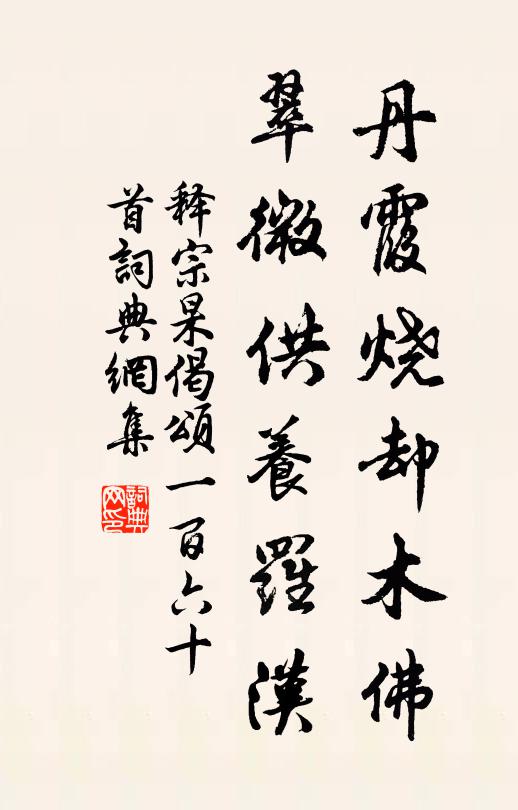 丹霞烧却木佛
翠微供養羅漢
释宗杲偈頌一百六十
首詞典網集
詞典网印